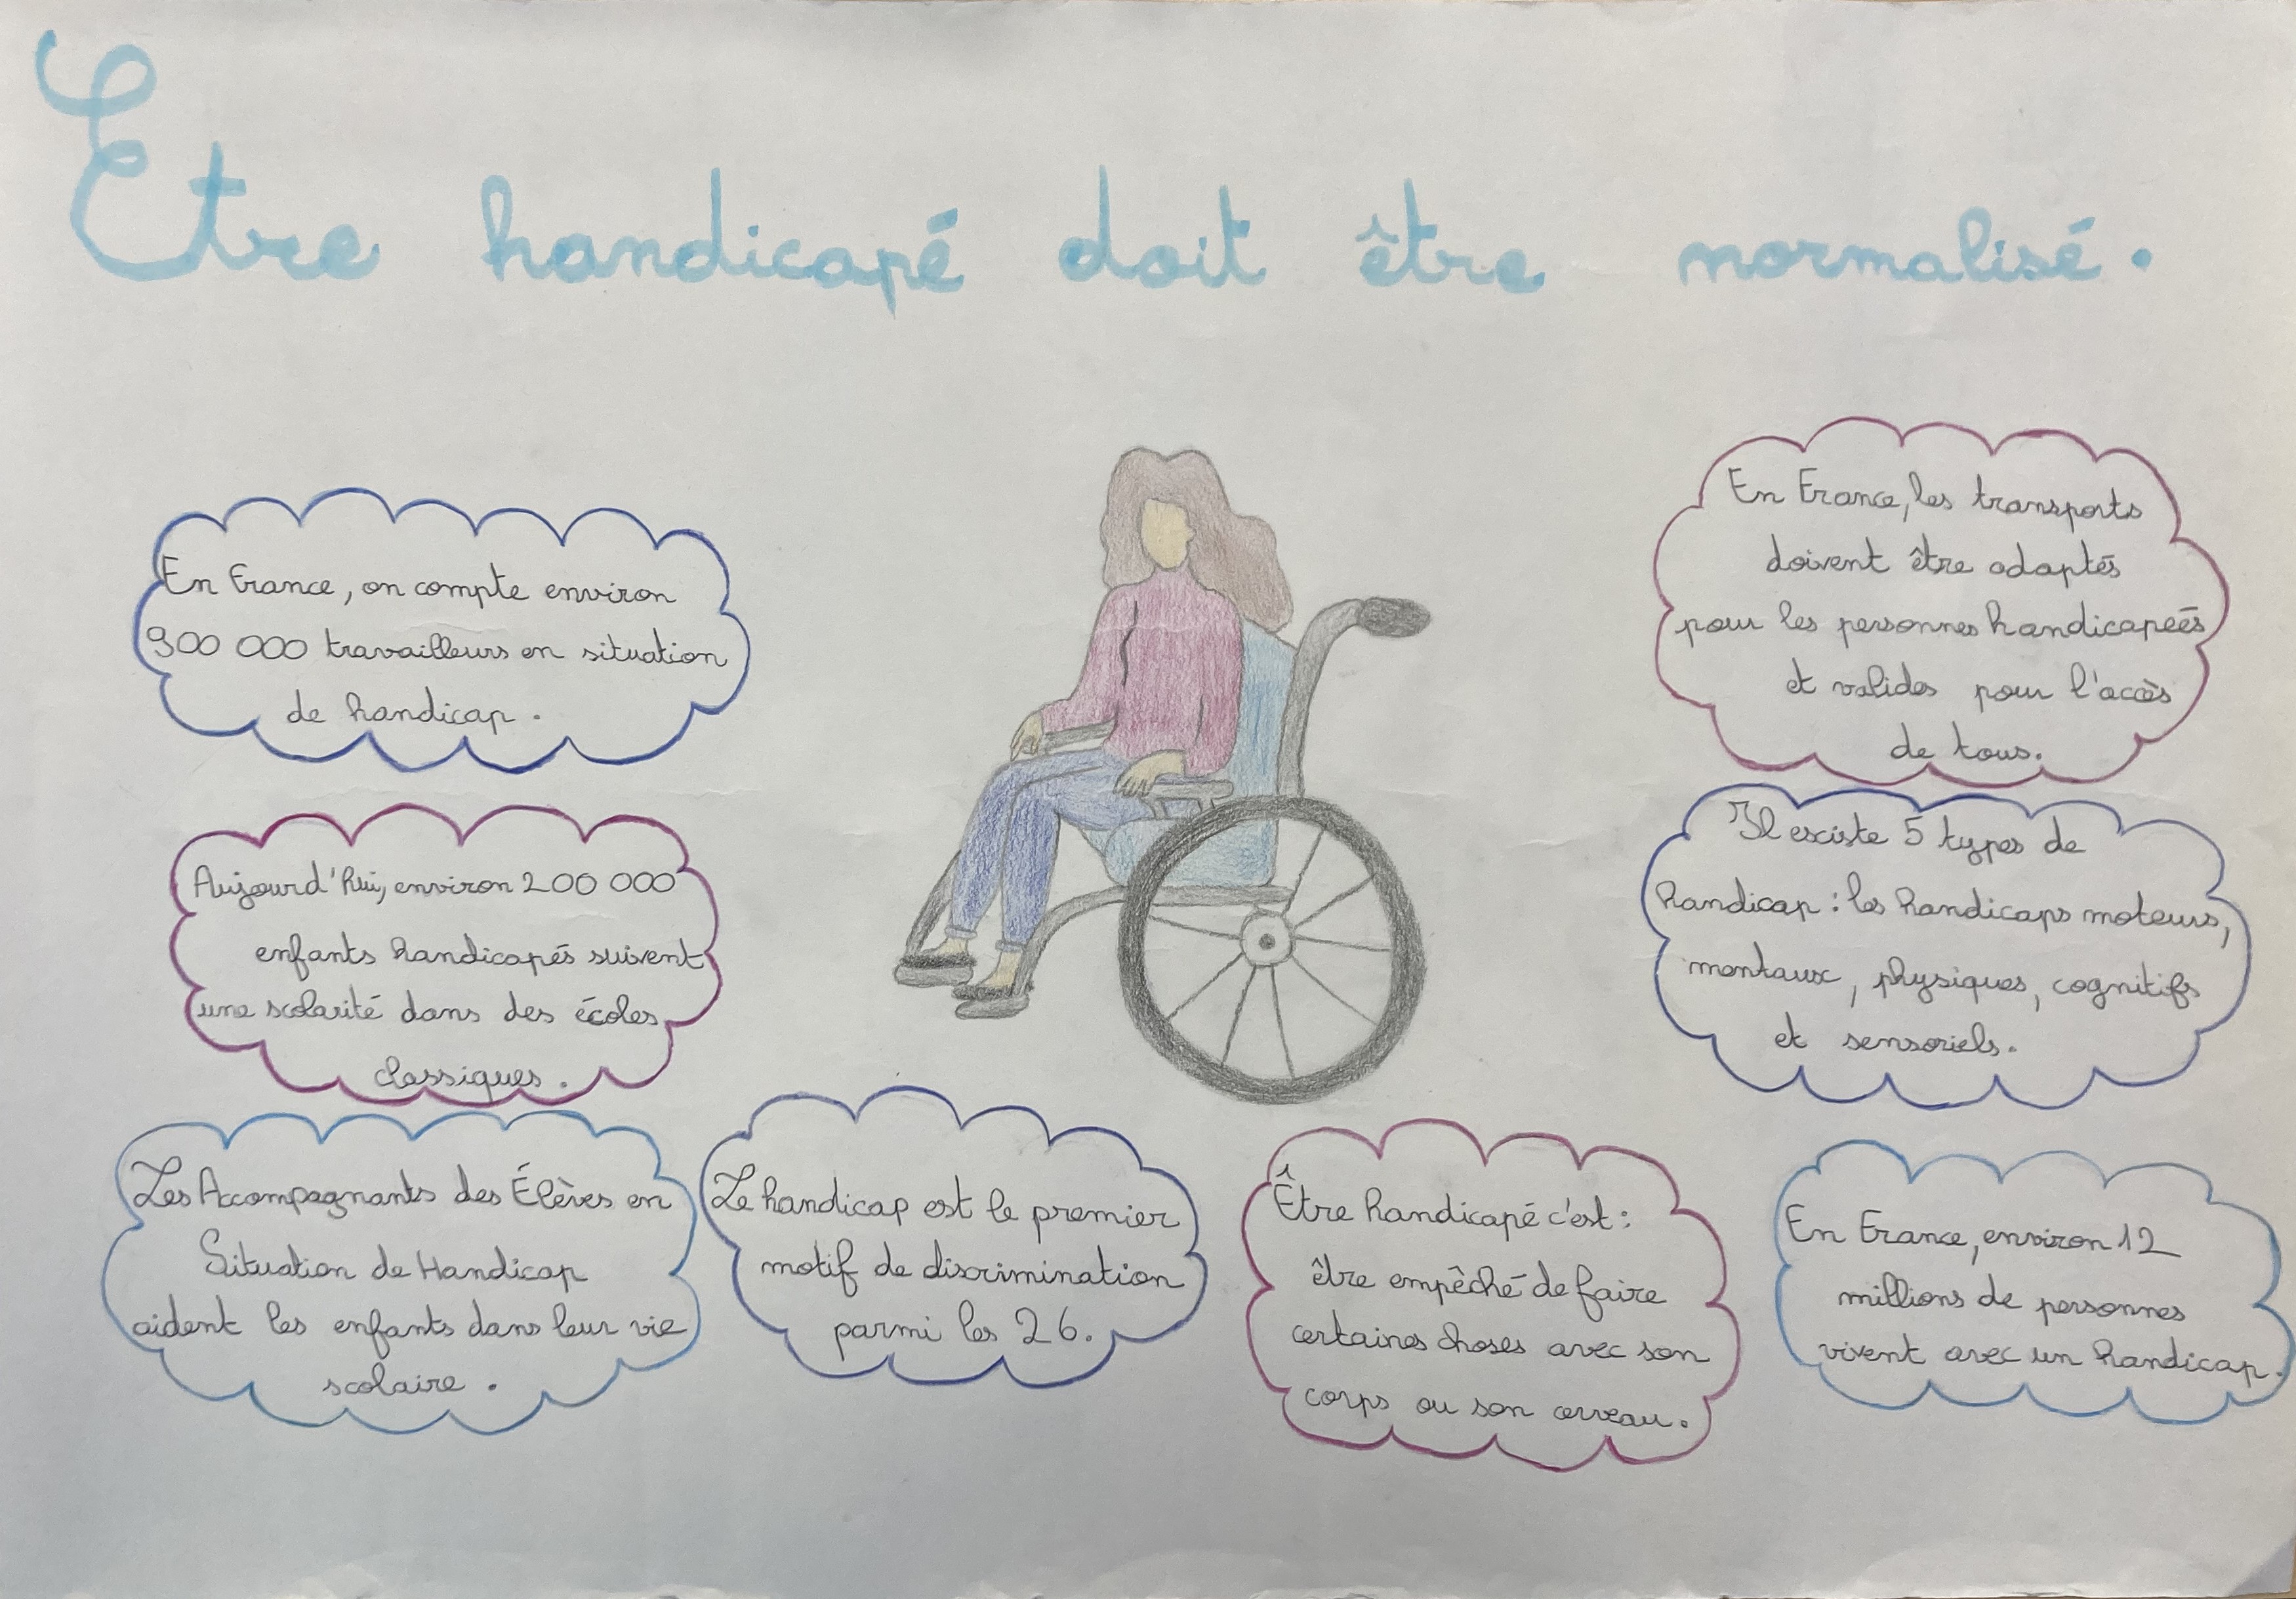 Etre handicapé doit être normalisé.
En France, on compte environ
900 000 travailleurs en situation
de handicap.
Aujourd'hui, environ 200 000
enfants handicapés suivent
une scolarité dans des écoles
classiques.
Les Accompagnants des Élèves en
Situation de Handicap
aident les enfants dans leur vie
scolaire.
Le handicap est le premier
motif de discrimination
parmi les 26.
Être handicapé c'est :
être empêché de faire
certaines choses avec son
corps ou son cerveau.
En France, les transports
doivent être adaptés
pour les personnes handicapéés
et valides pour l'accès
de tous.
Il existe 5 types de
handicap : les handicaps moteurs,
mentaux, physiques, cognitifs
et sensoriels.
En France, environ 12
millions de personnes
vivent avec un handicap.